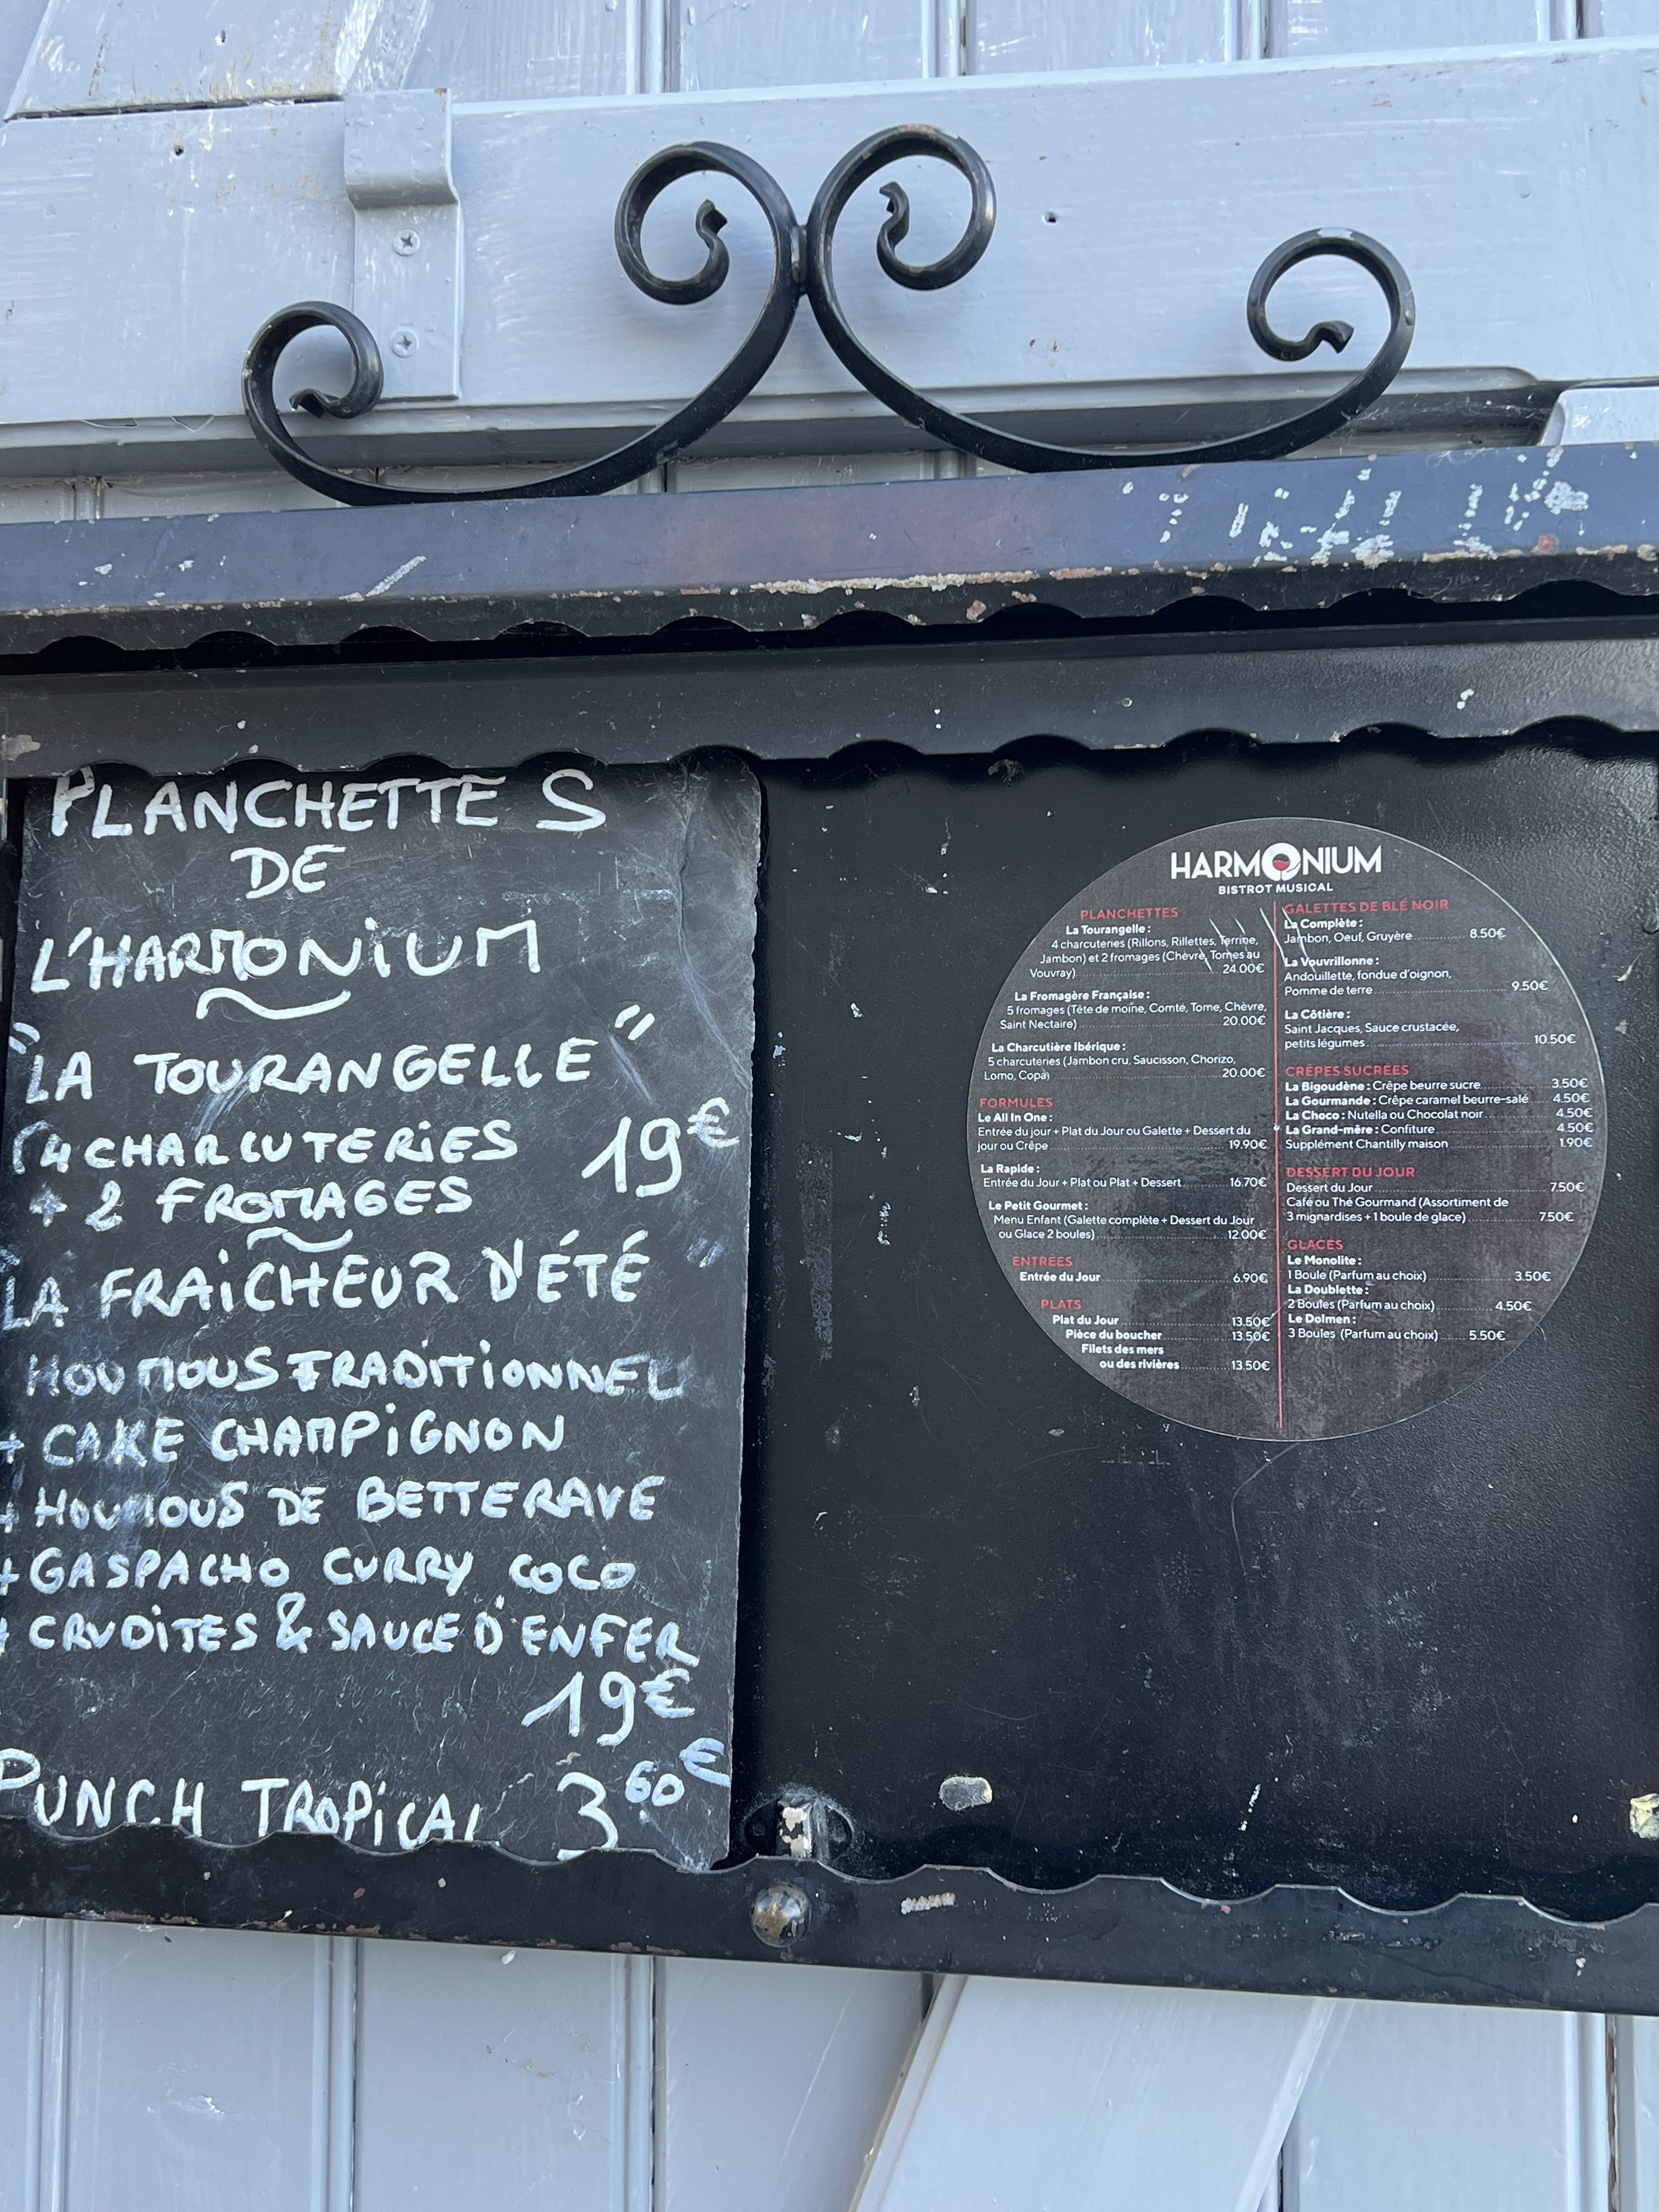 PLANCHETTES
DE
L'HARMONIUM
"LA TOURANGELLE"
4 CHARCUTERIES 19€
+ 2 FROMAGES
LA FRAiCHEUR D'ÉTÉ"
HOUMOUS TRADITIONNEL
+ CAKE CHAMPiGNON
+ HOUMOUS DE BETTERAVE
+ GASPACHO CURRY COCO
+ CRUDITES & SAUCE D'ENFER
19€
PUNCH TROPiCAL 3 60€
HARMONIUM
BISTROT MUSICAL
PLANCHETTES
La Tourangelle :
4 charcuteries (Rillons, Rillettes, Terrine,
Jambon) et 2 fromages (Chèvre, Tomes au
Vouvray) 24.00€
La Fromagère Française :
5 fromages (Tête de moine, Comté, Tome, Chèvre,
Saint Nectaire) 20.00€
La Charcutière Ibérique :
5 charcuteries (Jambon cru, Saucisson, Chorizo,
Lomo, Copa) 20.00€
FORMULES
Le All In One :
Entrée du jour + Plat du Jour ou Galette + Dessert du
jour ou Crêpe 19.90€
La Rapide :
Entrée du Jour + Plat ou Plat + Dessert 16.70€
Le Petit Gourmet :
Menu Enfant (Galette complète + Dessert du Jour
ou Glace 2 boules) 12.00€
ENTRÉES
Entrée du Jour 6.90€
PLATS
Plat du Jour 13.50€
Pièce du boucher 13.50€
Filets des mers
ou des rivières 13.50€
GALETTES DE BLÉ NOIR
La Complète :
Jambon, Oeuf, Gruyère 8.50€
La Vouvrillonne :
Andouillette, fondue d'oignon,
Pomme de terre 9.50€
La Côtière :
Saint Jacques, Sauce crustacée,
petits légumes 10.50€
CRÊPES SUCRÉES
La Bigoudène : Crêpe beurre sucre 3.50€
La Gourmande : Crêpe caramel beurre-salé 4.50€
La Choco : Nutella ou Chocolat noir 4.50€
La Grand-mère : Confiture 4.50€
Supplément Chantilly maison 1.90€
DESSERT DU JOUR
Dessert du Jour 7.50€
Café ou Thé Gourmand (Assortiment de
3 mignardises + 1 boule de glace) 7.50€
GLACES
Le Monolite :
1 Boule (Parfum au choix) 3.50€
La Doublette :
2 Boules (Parfum au choix) 4.50€
Le Dolmen :
3 Boules (Parfum au choix) 5.50€